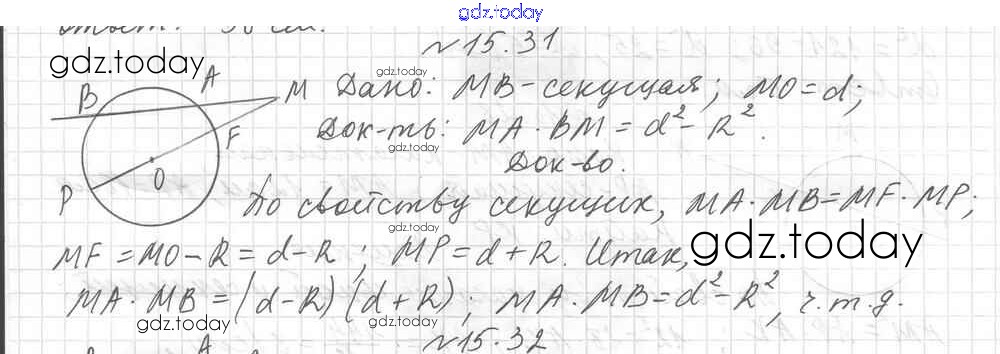 gdz.today
Ответ: 30 см.
№15.31
gdz.today
gdz.today
B A M F O P
Дано: MB-секущая; MO=d;
Док-ть: MA·BM=d²-R².
gdz.today
Док-во.
По свойству секущих, MA·MB=MF·MP;
gdz.today
gdz.today
MF=MO-R=d-R; MP=d+R. Итак,
MA·MB=(d-R)(d+R); MA·MB=d²-R², ч.т.д.
gdz.today
gdz.today
№15.32
A